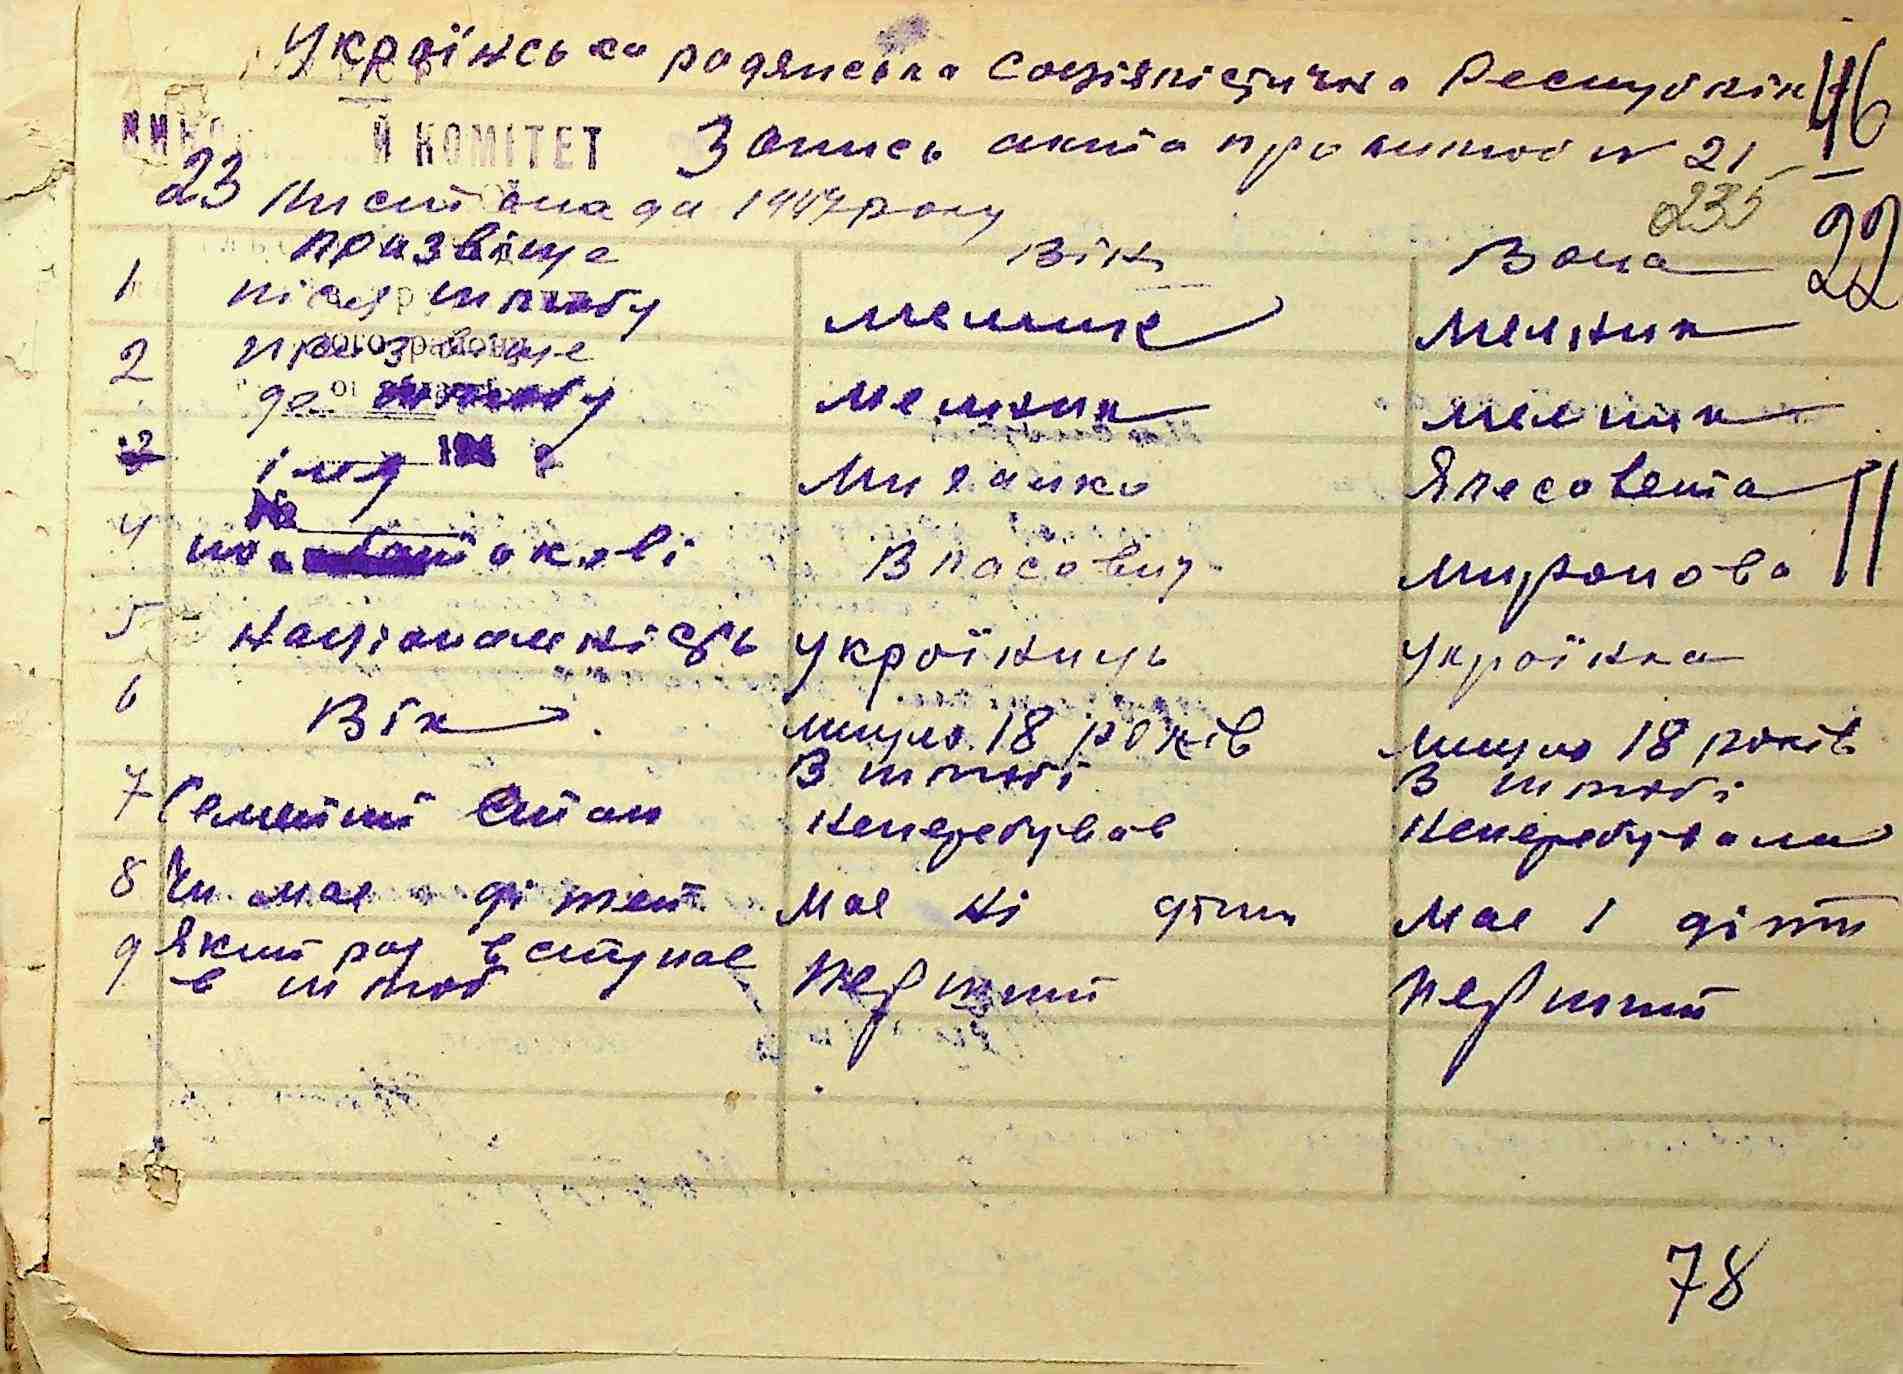 Українська радянська Соціялістична Республіка 46
Й КОМІТЕТ Запись акта про шлюб № 21
23 Листопада 1947 року 235 22
призвіще Він Вона
1 після шлюбу Мельник Мельник
2 призвіще
до шлюбу Мельник Мельник
3 імя Михайло Ялесовета
4 по батькові Власович Миронова
5 Національність Україниць Українка
6 Вік минуло 18 років минуло 18 років
7 Семейний Стан В шлюбі неперебував В шлюбі неперебувала
8 Чи має дітей Має ні діти Має 1 діти
9 Який раз вступає
в шлюб Перший Перший
78